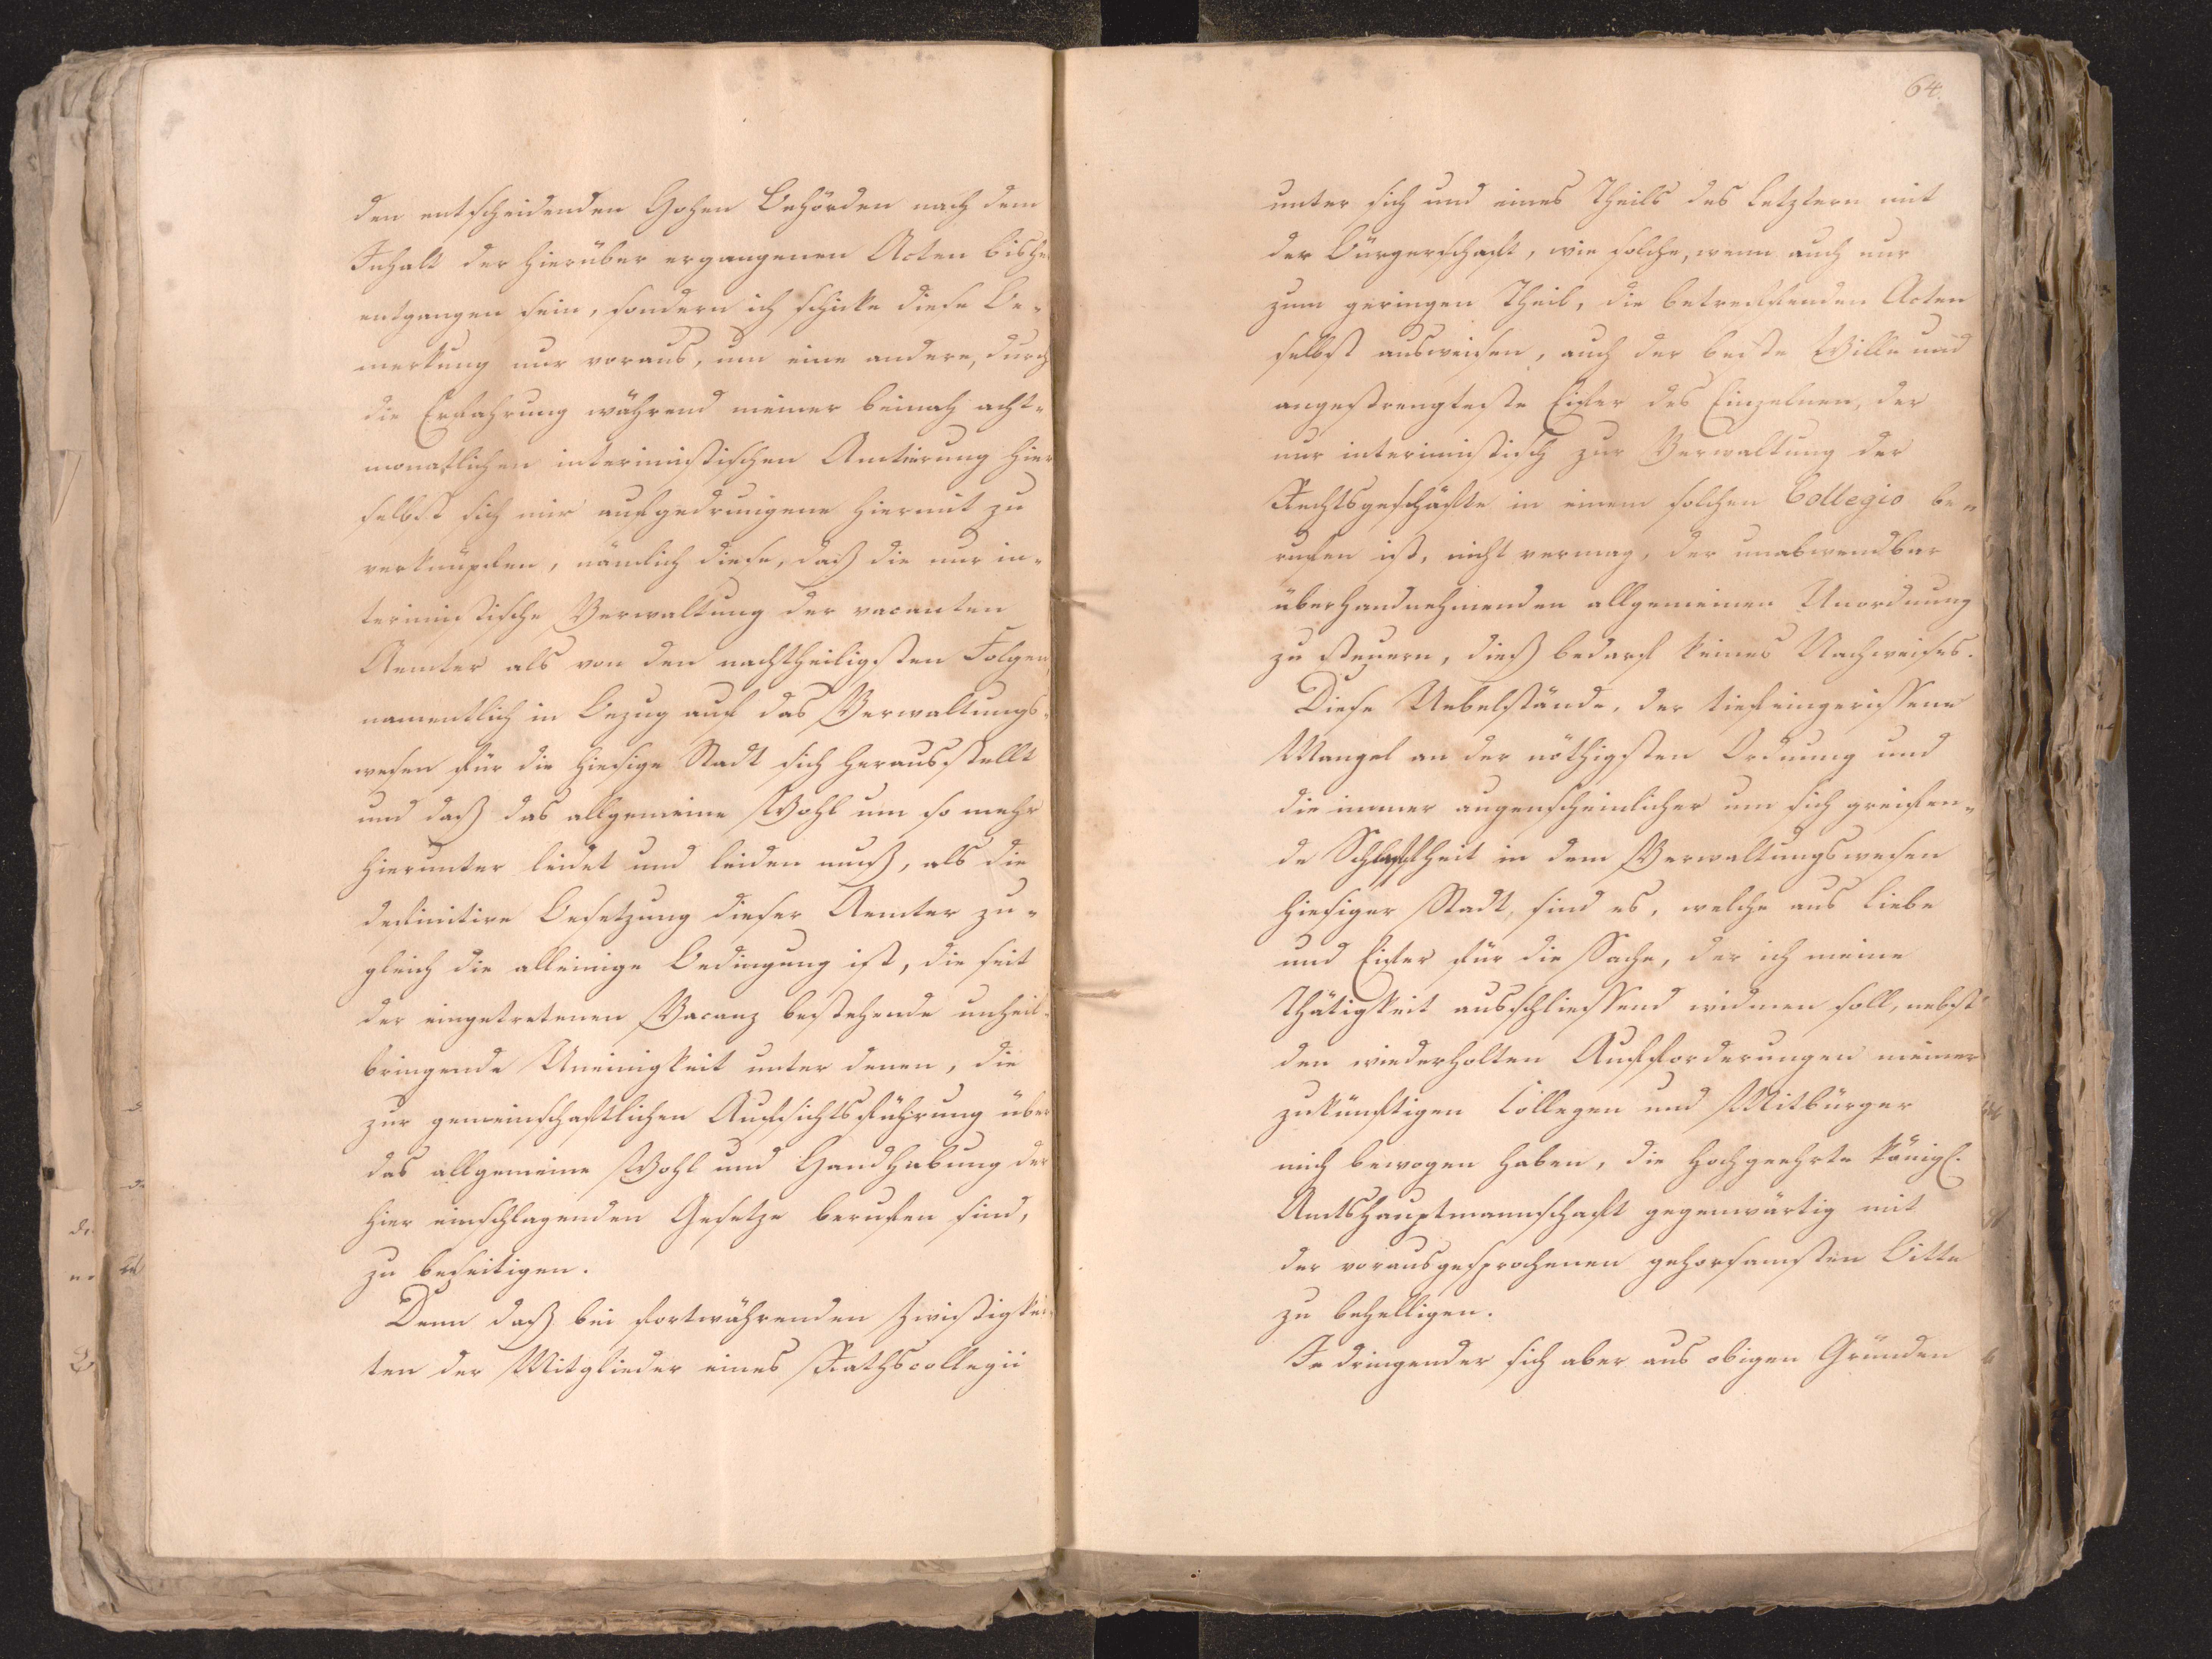 den entscheidenden Hohen Behörden nach dem
Inhalt der hierüber ergangenen Acten bisher
entgangen sein, sondern ich schicke diese Be-
merkung nur voraus, um eine andere, durch
die Erfahrung während meiner beinah acht-
monatlichen interimistischen Amtierung hier
selbst sich mir aufgedrungene hiermit zu
verknüpfen, nämlich diese, daß die nur in-
terimistische Verwaltung der vacanten
Aemter als von den nachtheiligsten Folgen,
namentlich in Bezug auf das Verwaltungs-
wesen für die hiesige Stadt sich herausstellt
und daß das allgemeine Wohl um so mehr
hierunter leidet und leiden muß, als die
definitive Besetzung dieser Aemter zu-
gleich die alleinige Bedingung ist, die seit
der eingetretenen Vacanz bestehende unheil-
bringende Uneinigkeit unter denen, die
zur gemeinschaftlichen Aufsichtsführung über
das allgemeine Wohl und Handhabung der
hier einschlagenden Gesetze berufen sind,
zu beseitigen.
Denn daß bei fortwährenden Zwistigkei-
ten der Mitglieder eines Rathscollegii
64.
unter sich und eines Theils des Letztern mit
der Bürgerschaft, wie solche, wenn auch nur
zum geringen Theil, die betreffenden Acten
selbst ausweisen, auch der beste Wille und
angestrengteste Eifer des Einzelnen, der
nur interimistisch zur Verwaltung der
Rechtsgeschäfte in einem solchen Collegio be-
rufen ist, nicht vermag, der unabwendbar
überhandnehmenden allgemeinen Unordnung
zu steuern, dieß bedarf keines Nachweises.
Diese Uebelstände, der tiefeingerissene
Mangel an der nöthigsten Ordnung und
die immer augenscheinlicher um sich greifen-
de Schlaffheit in dem Verwaltungswesen
hiesiger Stadt, sind es, welche aus Liebe
und Eifer für die Sache, der ich meine
Thätigkeit ausschliessend widmen soll, nebst
den wiederholten Aufforderungen meiner
zukünftigen Collegen und Mitbürger
mich bewogen haben, die Hochgeehrte Königl.
Amtshauptmannschaft gegenwärtig mit
der vorausgesprochenen gehorsamsten Bitte
zu behelligen.
Je dringender sich aber aus obigen Gründen